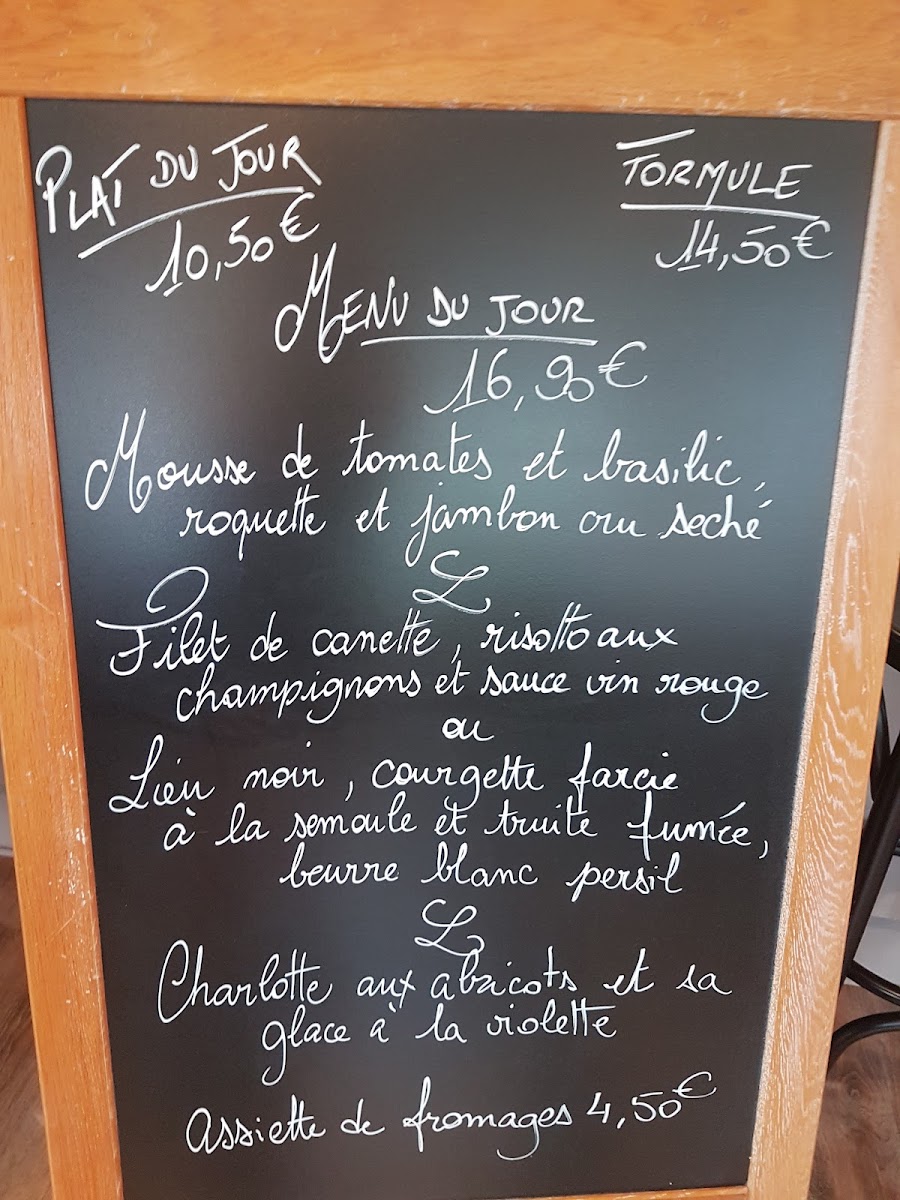 PLAT DU JOUR
10,50€
FORMULE
14,50€
MENU DU JOUR
16,90€
Mousse de tomates et basilic,
roquette et jambon cru seché
Filet de canette, risotto aux
champignons et sauce vin rouge
ou
Lieu noir, courgette farcie
à la semoule et truite fumée,
beurre blanc persil
Charlotte aux abricots et sa
glace à la violette
Assiette de fromages 4,50€